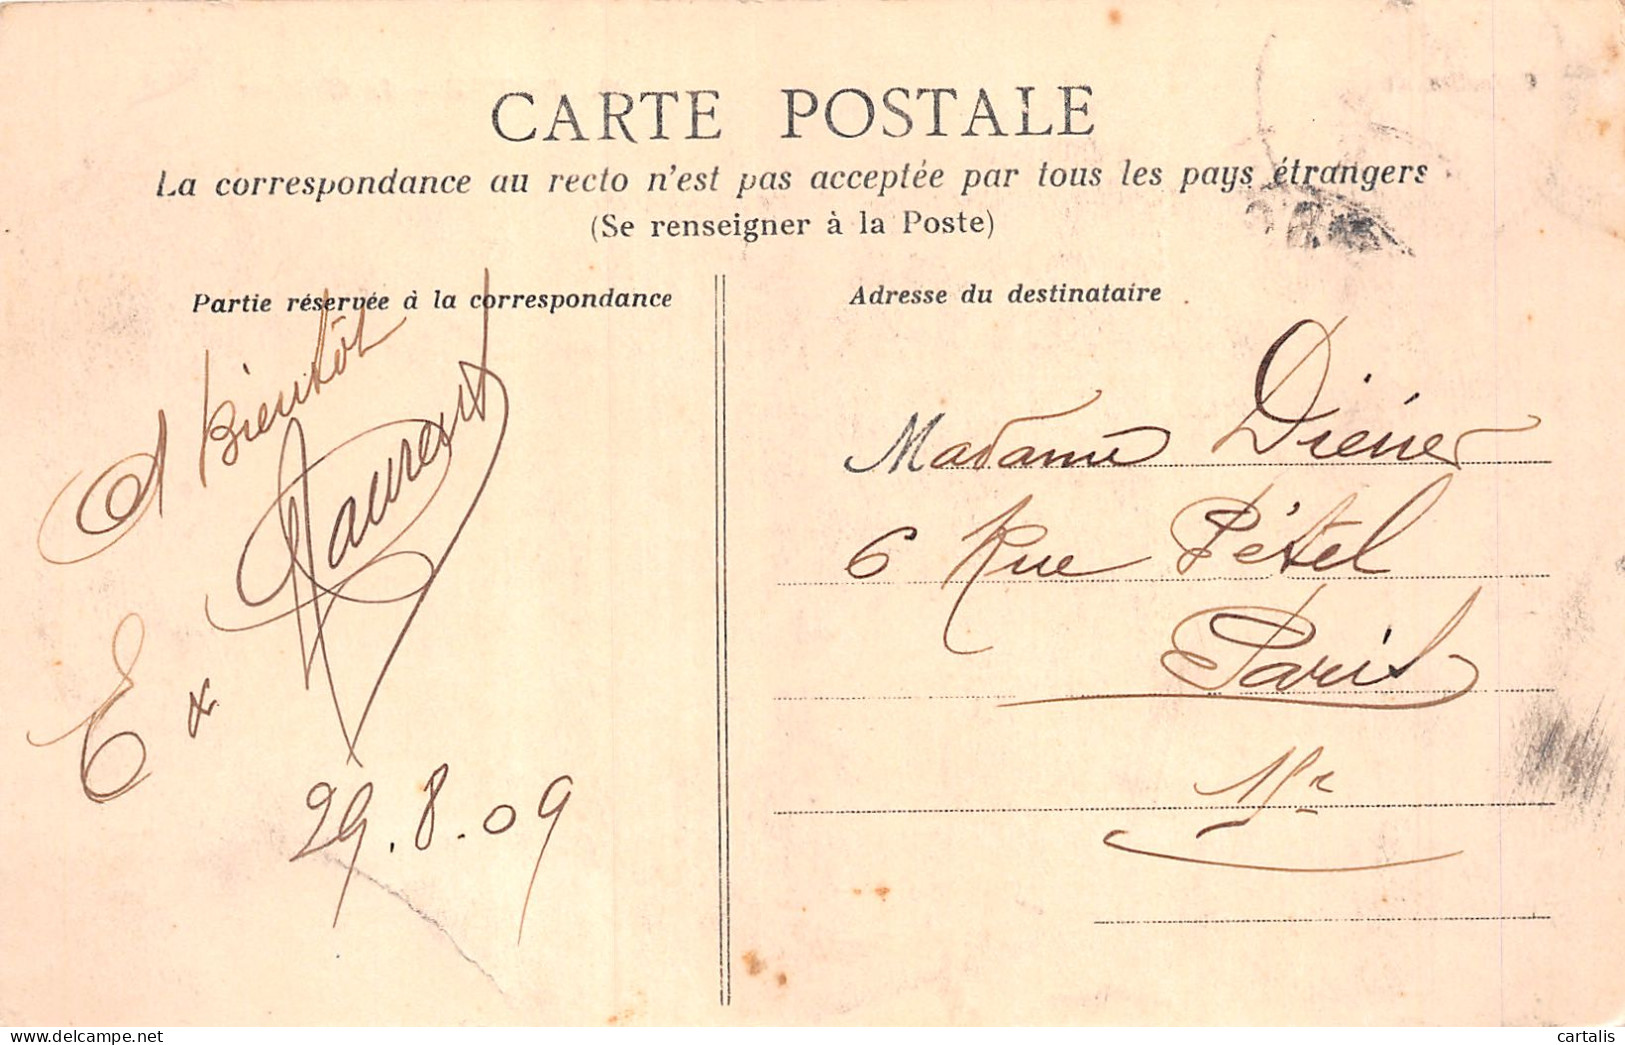 CARTE POSTALE
La correspondance au recto n'est pas acceptée par tous les pays étrangers
(Se renseigner à la Poste)
Partie réservée à la correspondance
A Bientôt
Laurent
E x
29.8.09
Adresse du destinataire
Madame Diéner
6 Rue Pétel
Paris
cartalis